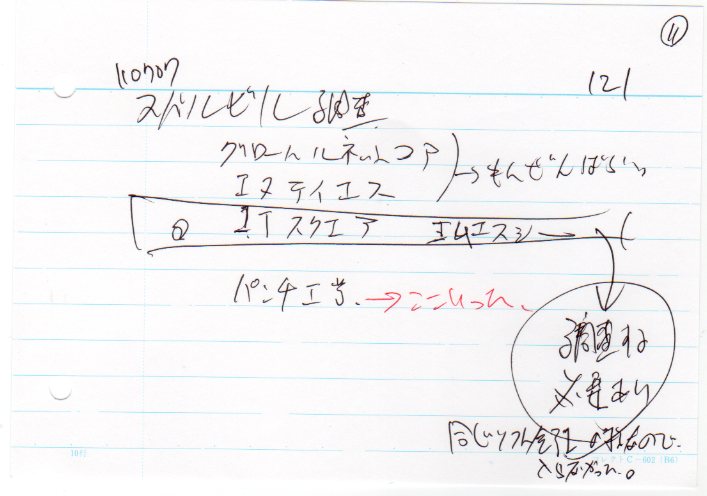 ⑪
110707
121
スバルビル調査
グローバルネットコア
エヌティエス
→もんぜんばらい
ITスクエア エムエスシ→
パンチ工学 →ここいった。
調査する
必要あり
同じソフト会社の
入らなかった。
10行
C-602 (B6)